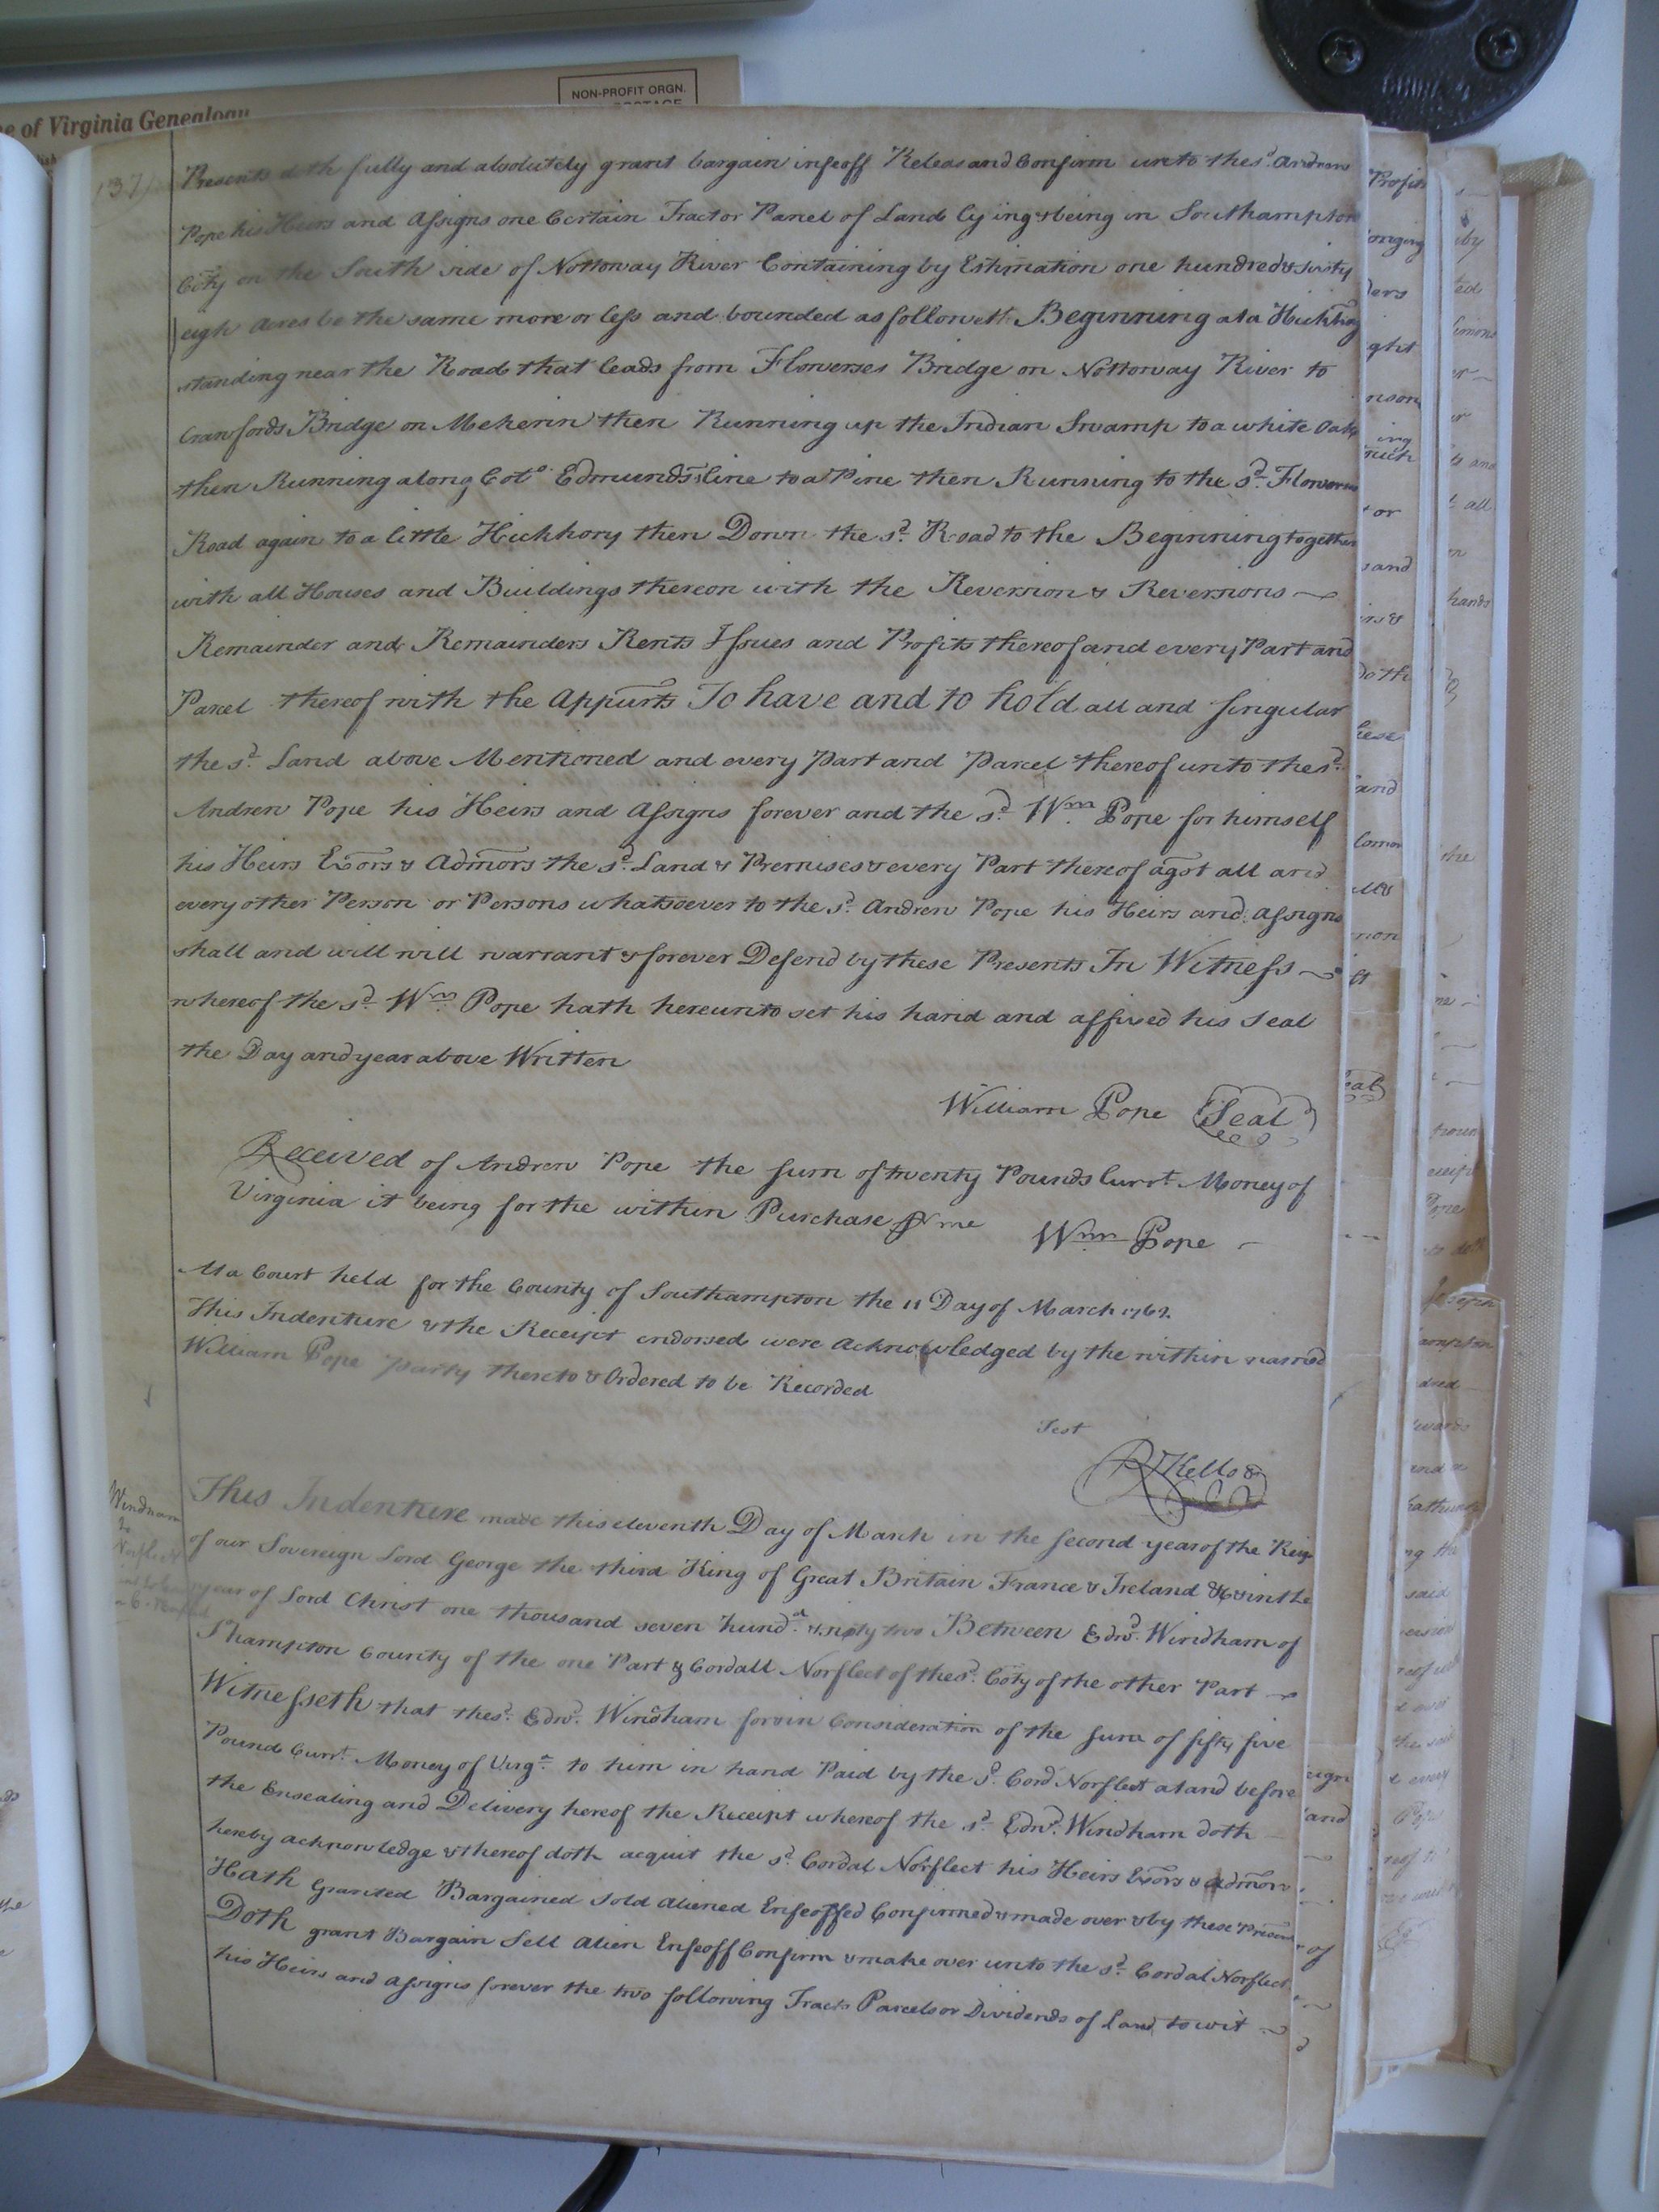 NON-PROFIT ORGN.
e of Virginia Genealogy
137
Presents doth fully and absolutely grant bargain infeoff Releas and Confirm unto the sd. Andrew
Pope his Heirs and Assigns one Certain Tract or Parcel of Land Lying & being in Southampton
Coty on the South side of Nottoway River Containing by Estimation one hundred & sixty
eigh Acres be the same more or less and bounded as followeth Beginning at a Hickhory
standing near the Road that leads from Flowerses Bridge on Nottoway River to
Crawfords Bridge on Meherin then Running up the Indian Swamp to a white Oak
then Running along Colo. Edmunds's line to a Pine then Running to the sd. Flowers
Road again to a little Hickhory then Down the sd. Road to the Beginning together
with all Houses and Buildings thereon with the Reversion & Reversions
Remainder and Remainders Rents Issues and Profits thereof and every Part and
Parcel thereof with the Appurts To have and to hold all and singular
the sd. Land above Mentioned and every Part and Parcel thereof unto the sd.
Andrew Pope his Heirs and Assigns forever and the sd. Wm. Pope for himself
his Heirs Exors & Admors the sd. Land & Premises & every Part thereof agst all and
every other Person or Persons whatsoever to the sd. Andrew Pope his Heirs and Assigns
shall and will will warrant & forever Defend by these Presents In Witness
whereof the sd. Wm. Pope hath hereunto set his hand and affixed his Seal
the Day and year above Written
William Pope Seal
Received of Andrew Pope the sum of twenty Pounds Currt. Money of
Virginia it being for the within Purchase ⅌ me Wm Pope
At a Court held for the County of Southampton the 11 Day of March 1762.
This Indenture & the Receipt endorsed were Acknowledged by the within named
William Pope Party thereto & Ordered to be Recorded
Test
R Kello
Windham
to
Norfleet
This Indenture made this eleventh Day of March in the second year of the Reign
of our Sovereign Lord George the third King of Great Britain France & Ireland &c & in the
year of Lord Christ one thousand seven hundd. & sixty two Between Edwd. Windham of
Shampton County of the one Part & Cordall Norfleet of the sd. Coty of the other Part
Witnesseth that the sd. Edwd. Windham for & in Consideration of the sum of fifty five
Pound Currt. Money of Virga. to him in hand Paid by the sd. Cord Norfleet at and before
the Ensealing and Delivery hereof the Receipt whereof the sd. Edwd. Windham doth
hereby acknowledge & thereof doth acquit the sd. Cordal Norfleet his Heirs Exors & admors
Hath Granted Bargained sold Aliened Enfeoffed Confirmed & made over & by these Presents
Doth grant Bargain Sell Alien Enfeoff Confirm & make over unto the sd. Cordal Norfleet
his Heirs and Assigns forever the two following Tracts Parcels or Dividends of Land to wit